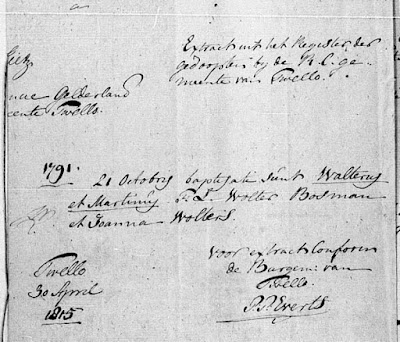 Extract uit het Register der
gedoopten bij de R. C. ge-
meente van Twello.
Gelderland
Twello.
1791. 21 Octobris baptizati sunt Walterus
et Martinus F. L. Wolter Bosman
et Joanna Wolters.
Voor extract Conform
de Burgem: van
Twello.
Twello
30 April
1815
Everts